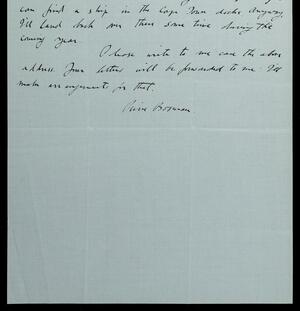 can find a ship in the Cape Town docks. Anyway,
I'll land back over there some time during the
coming year.
Please write to me care the above
address. Your letters will be forwarded to me. I'll
make arrangements for that.